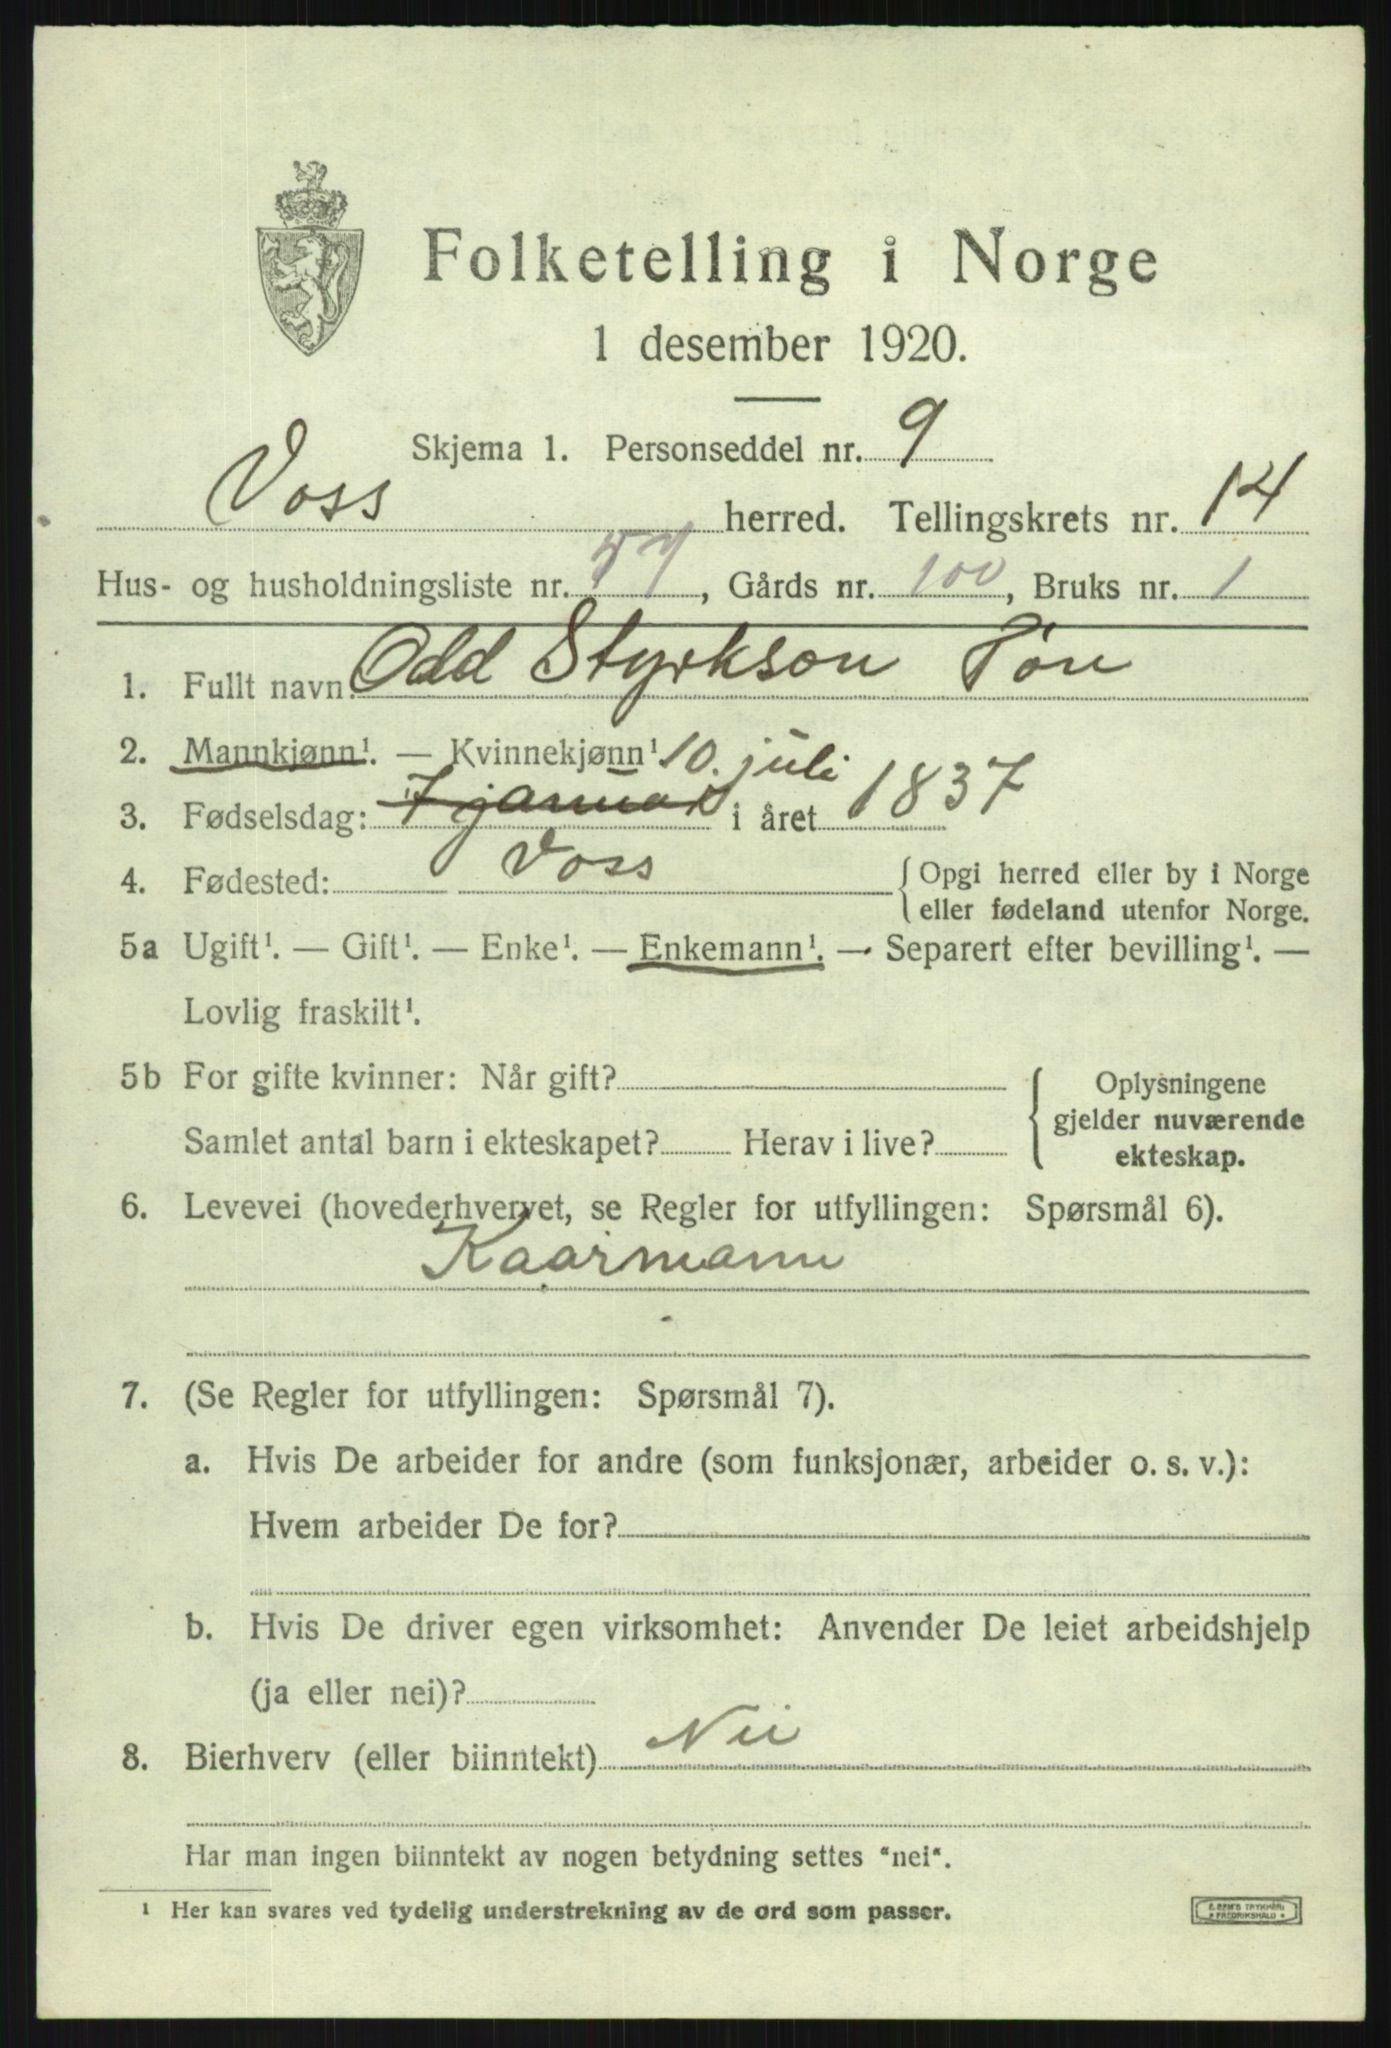 Folketelling i Norge
1 desember 1920.
Skjema 1. Personseddel nr. 9
Voss herred. Tellingskrets nr. 14
Hus- og husholdningsliste nr. 57, Gårds nr. 100, Bruks nr. 1
1. Fullt navn: Odd Styrkson Tøn
2. Mannkjønn¹. — Kvinnekjønn¹ 10. juli
3. Fødselsdag: 7 januar i året 1837
4. Fødested: Voss { Opgi herred eller by i Norge
eller fødeland utenfor Norge.
5a Ugift¹. — Gift¹. — Enke¹. — Enkemann¹. — Separert efter bevilling¹. —
Lovlig fraskilt¹.
5b For gifte kvinner: Når gift? { Oplysningene
gjelder nuværende
Samlet antal barn i ekteskapet? Herav i live? ekteskap.
6. Levevei (hovederhvervet, se Regler for utfyllingen: Spørsmål 6).
Kaarmann
7. (Se Regler for utfyllingen: Spørsmål 7).
a. Hvis De arbeider for andre (som funksjonær, arbeider o. s. v.):
Hvem arbeider De for?
b. Hvis De driver egen virksomhet: Anvender De leiet arbeidshjelp
(ja eller nei)?
8. Bierhverv (eller biinntekt) Nei
Har man ingen biinntekt av nogen betydning settes "nei".
¹ Her kan svares ved tydelig understrekning av de ord som passer.